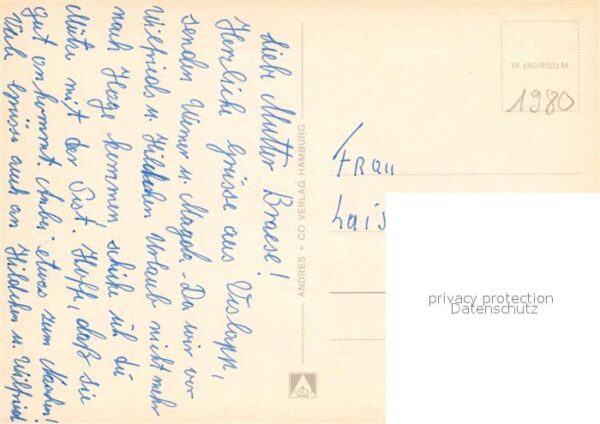 Liebe Mutter Braese!
Herzliche Grüsse aus
senden Werner u. Magda - Da wir vor
Wilfrieds u. Hildchen Urlaub nicht mehr
nach Hage kommen schicke ich du
Mütze mit der Post. Hoffe, daß sie
gut ankommt. Anbei etwas zum Naschen!
Viele Grüsse auch an Hildchen u. Wilfried
ANDRES + CO VERLAG HAMBURG
W 180/9501 M
1980
Frau
Lais
privacy protection
Datenschutz